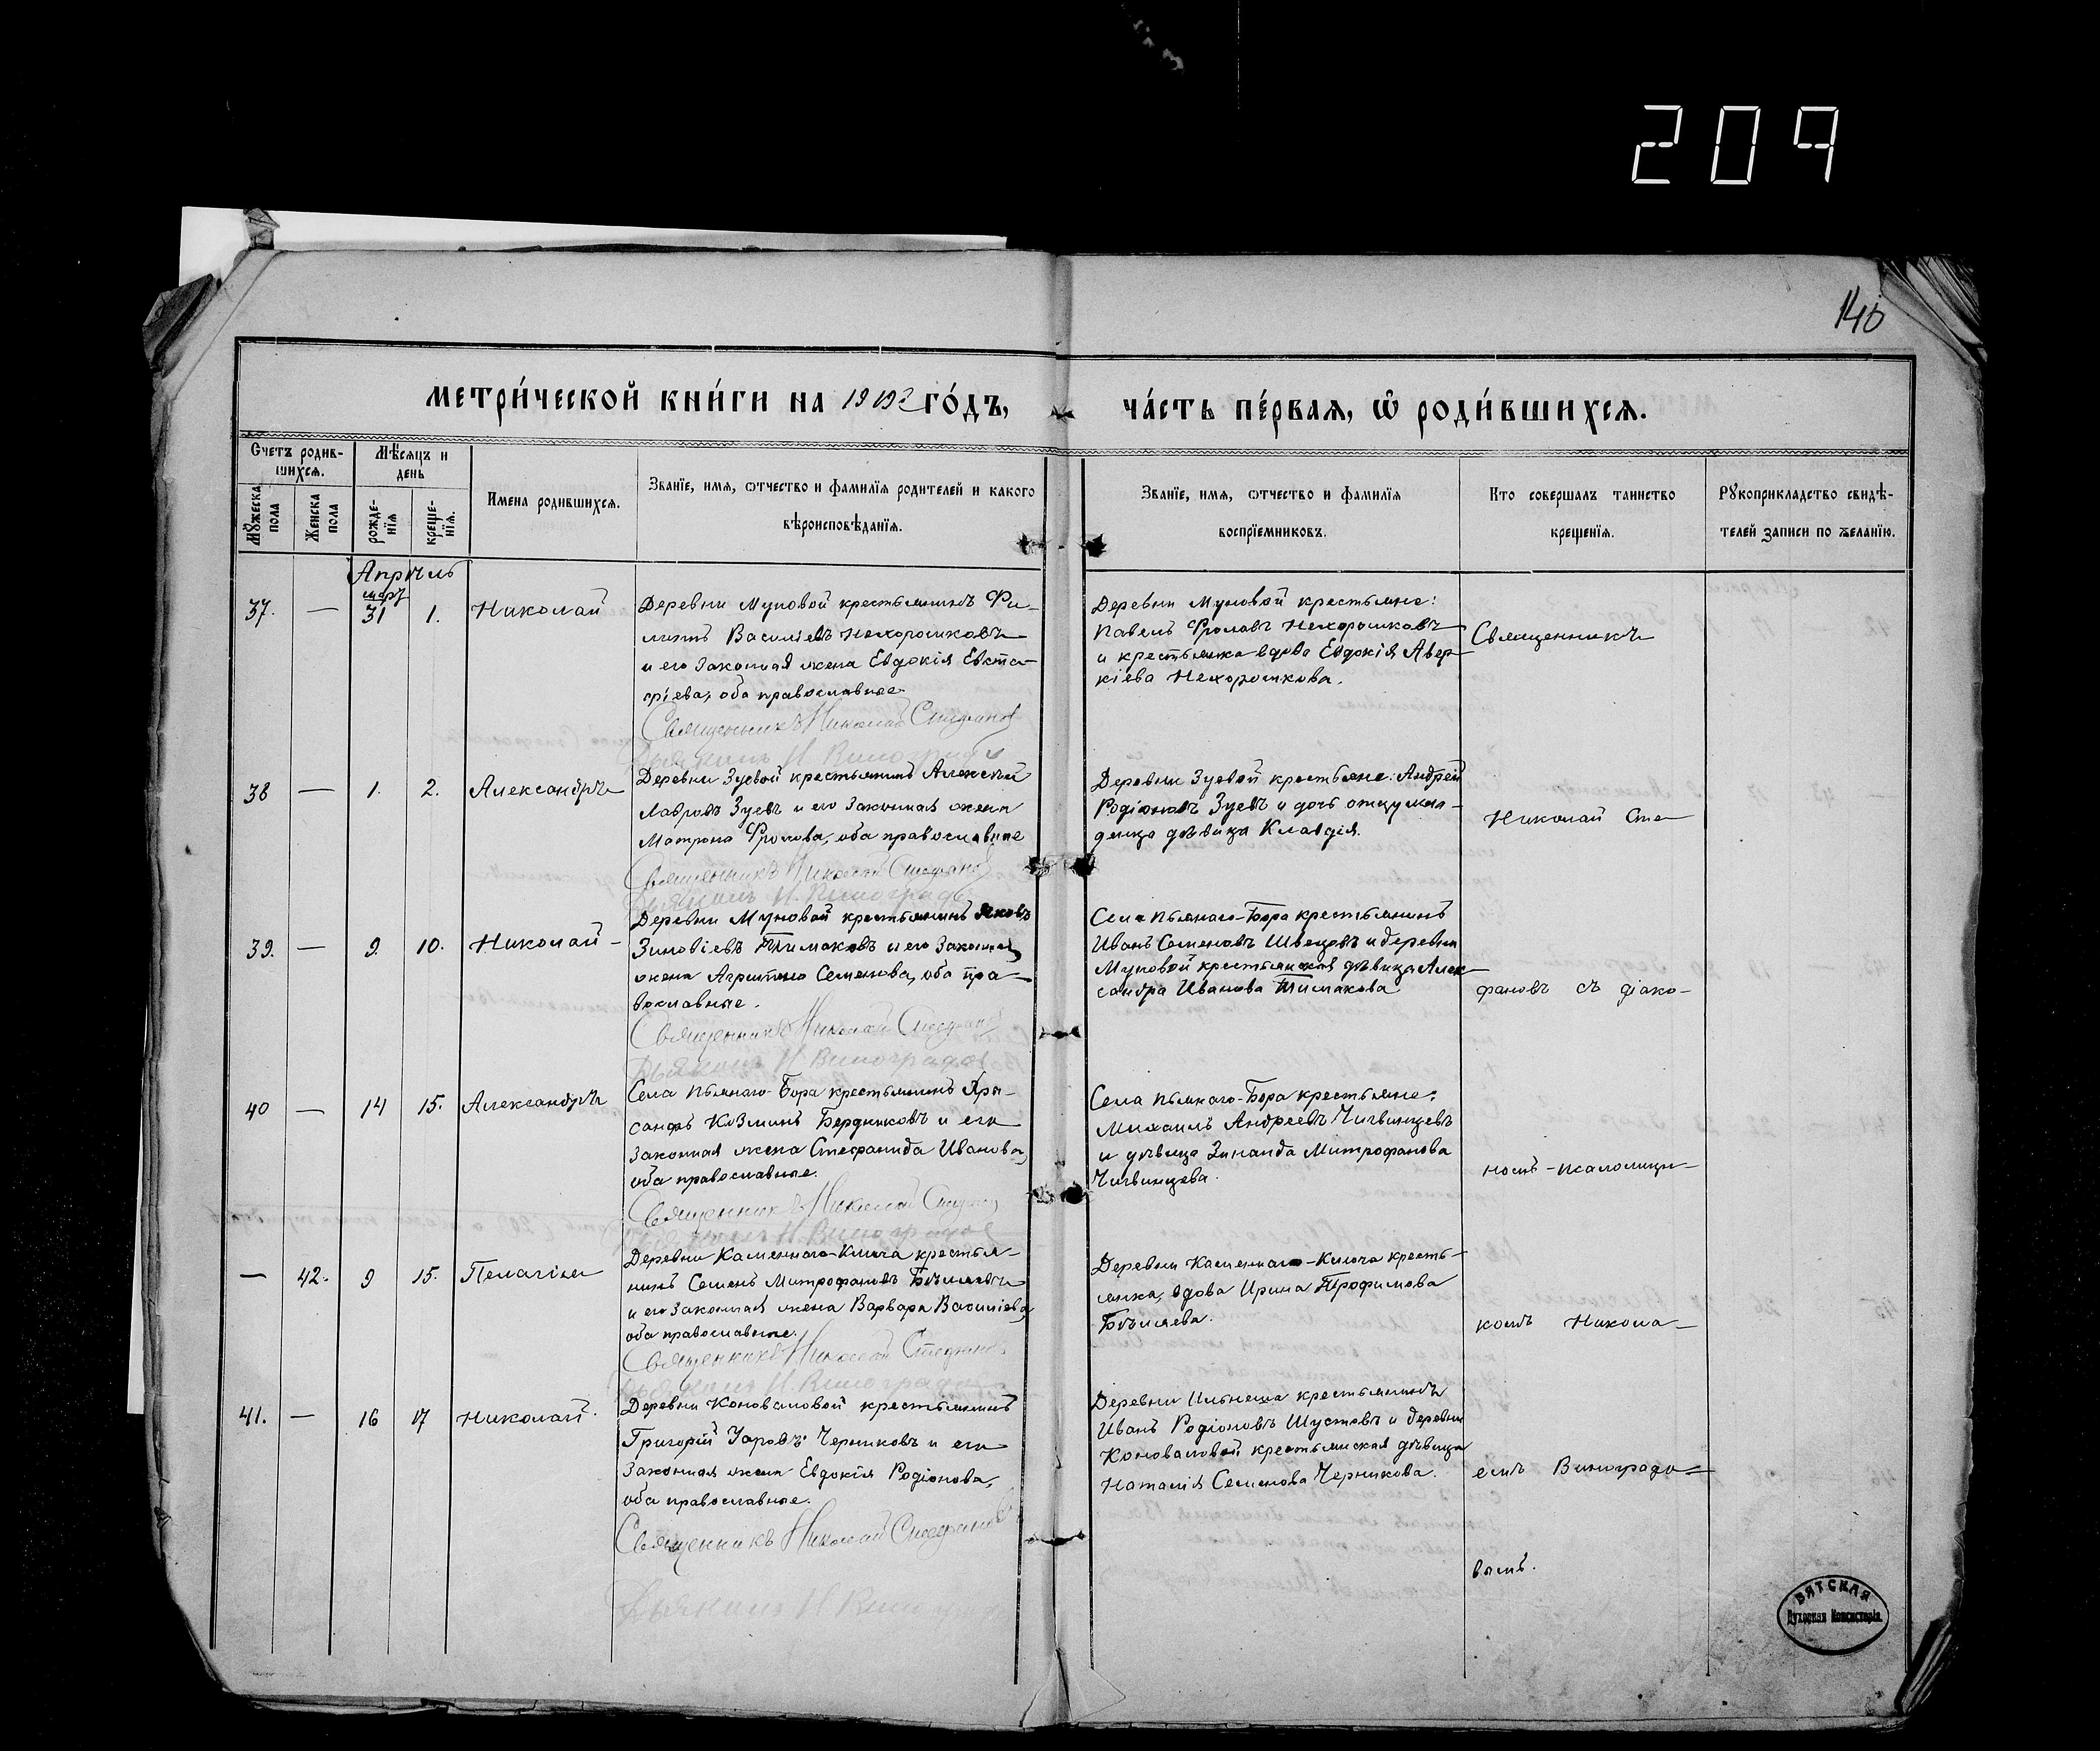 209
140
МЕТРИ́ЧЕСКОЙ КНИ́ГИ НА 1912 ГО́ДЪ,
ЧА́СТЬ ПЕ́РВАЯ, Ѽ РОДИ́ВШИХСЯ.
Счетъ родив-
шихся.
Мꙋжеска пола
Женска пола
Мѣсяцъ и
день
рожде-
нїя
креще-
нїя.
Имена родившихся.
Званїе, имя, ѿтчество и фамилїя родителей и какого
вѣроисповѣданїя.
Званїе, имя, ѿтчество и фамилїя
воспрїемниковъ.
Кто совершалъ таинство
крещенїя.
Рꙋкоприкладство свидѣ-
телей записи по желанїю.
Апрѣль
мар.
37. — 31 1. Николай
Деревни Муновой крестьянинъ Фи-
липпъ Василіевъ Нехорошковъ
и его законная жена Евдокія Евста-
фіева, оба православные.
Священникъ Николай Стефановъ
Дьяконъ Н. Виноградовъ
Деревни Муновой крестьяне:
Павелъ Фроловъ Нехорошковъ
и крестьянка вдова Евдокія Авер-
кіева Нехорошкова.
Священникъ
38 — 1. 2. Александръ
Деревни Зуевой крестьянинъ Алексѣй
Лавровъ Зуевъ и его законная жена
Матрона Фролова, оба православные
Священникъ Николай Стефановъ
Дьяконъ Н. Виноградовъ
Деревни Зуевой крестьяне: Андрей
Родіоновъ Зуевъ и дочь отцу мла-
денца дѣвица Клавдія.
Николай Сте-
39. — 9. 10. Николай
Деревни Муновой крестьянинъ Яковъ
Зиновіевъ Тимаковъ и его законная
жена Агриппина Семенова, оба пра-
вославные.
Священникъ Николай Стефановъ
Дьяконъ Н. Виноградовъ
Села Пьянаго-Бора крестьянинъ
Иванъ Семеновъ Швецовъ и деревни
Муновой крестьянская дѣвица Алек-
сандра Иванова Тимакова
фановъ съ діако-
40 — 14 15. Александръ
Села Пьянаго-Бора крестьянинъ Хри-
санфъ Козминъ Бердниковъ и его
законная жена Стефанида Иванова,
оба православные.
Священникъ Николай Стефановъ
Дьяконъ Н. Виноградовъ
Села Пьянаго-Бора крестьяне:
Михаилъ Андреевъ Чигвинцевъ
и дѣвица Зинаида Митрофанова
Чигвинцева.
номъ-псаломщи-
— 42. 9 15. Пелагія
Деревни Каменнаго-Ключа крестья-
нинъ Семенъ Митрофановъ Бѣляевъ
и его законная жена Варвара Василіева,
оба православные.
Священникъ Николай Стефановъ
Дьяконъ Н. Виноградовъ
Деревни Каменнаго-Ключа кресть-
янка, вдова Ирина Трофимова
Бѣляева.
комъ Никола-
41. — 16 17 Николай.
Деревни Коноваловой крестьянинъ
Григорій Уаровъ Черниковъ и его
законная жена Евдокія Родіонова,
оба православные.
Священникъ Николай Стефановъ
Дьяконъ Н. Виноградовъ
Деревни Ильнеша крестьянинъ
Иванъ Родіоновъ Шустовъ и деревни
Коноваловой крестьянская дѣвица
Наталія Семенова Черникова.
емъ Виноградо-
вымъ.
ВЯТСКАЯ
Духовная Консисторія.